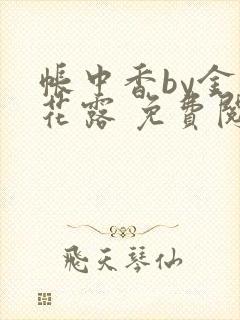 帳中香by金
花露 免費閱
飛天琴仙